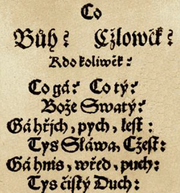 Co
Bůh? Cžlowěk?
Kdo koliwěk:
Co gá? Co tý?
Bože Swatý:
Gá hřjch, pych, lest:
Tys Sláwa, Cžest:
Gá hnis, wřed, puch:
Tys čistý Duch: